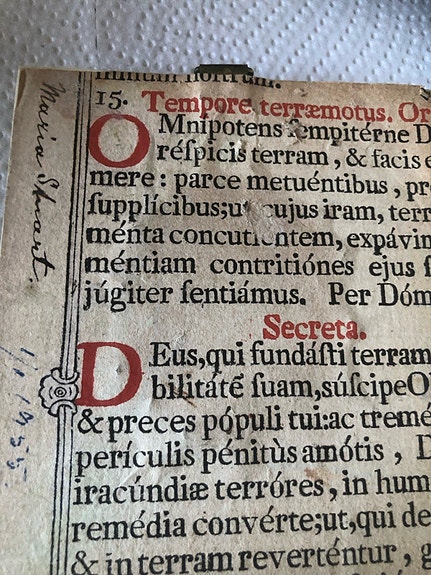 nostrum.
15. Tempore terræmotus. Or
OMnípotens sempitérne D
réſpicis terram, & facis e
mere: parce metuéntibus, pr
ſupplícibus; ut cujus iram, terr
ménta concutientem, expávim
méntiam contritiónes ejus ſ
júgiter ſentiámus. Per Dóm
Secreta.
DEus, qui fundáſti terram
bilitátē ſuam, súſcipe O
& preces pópuli tui: ac tremé
perículis pénitùs amótis, D
iracúndiæ terróres, in hum
remédia convérte; ut, qui de
& in terram reverténtur, g
Maria Stuart.